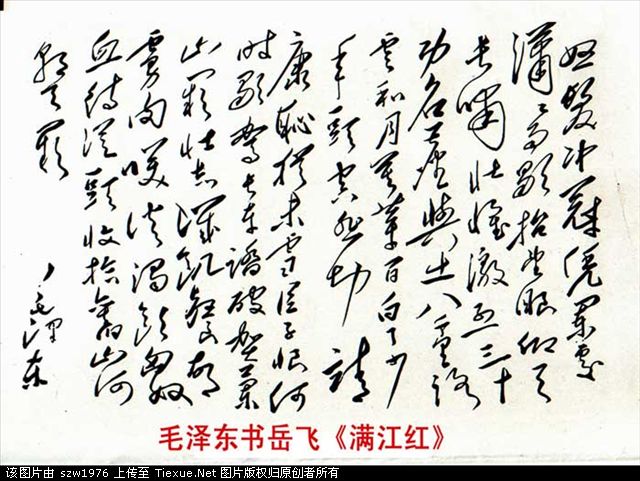 怒髮冲冠凭阑处
潇潇雨歇抬望眼仰天
长啸壮怀激烈三十
功名尘与土八千里路
云和月莫等闲白了少
年头空悲切 靖
康耻犹未雪臣子恨何
时歇驾长车踏破贺兰
山缺壮志饥餐胡
虏肉笑谈渴饮匈奴
血待从头收拾旧山河
朝天阙
毛泽东
毛泽东书岳飞《满江红》
该图片由 szw1976 上传至 Tiexue.Net 图片版权归原创者所有